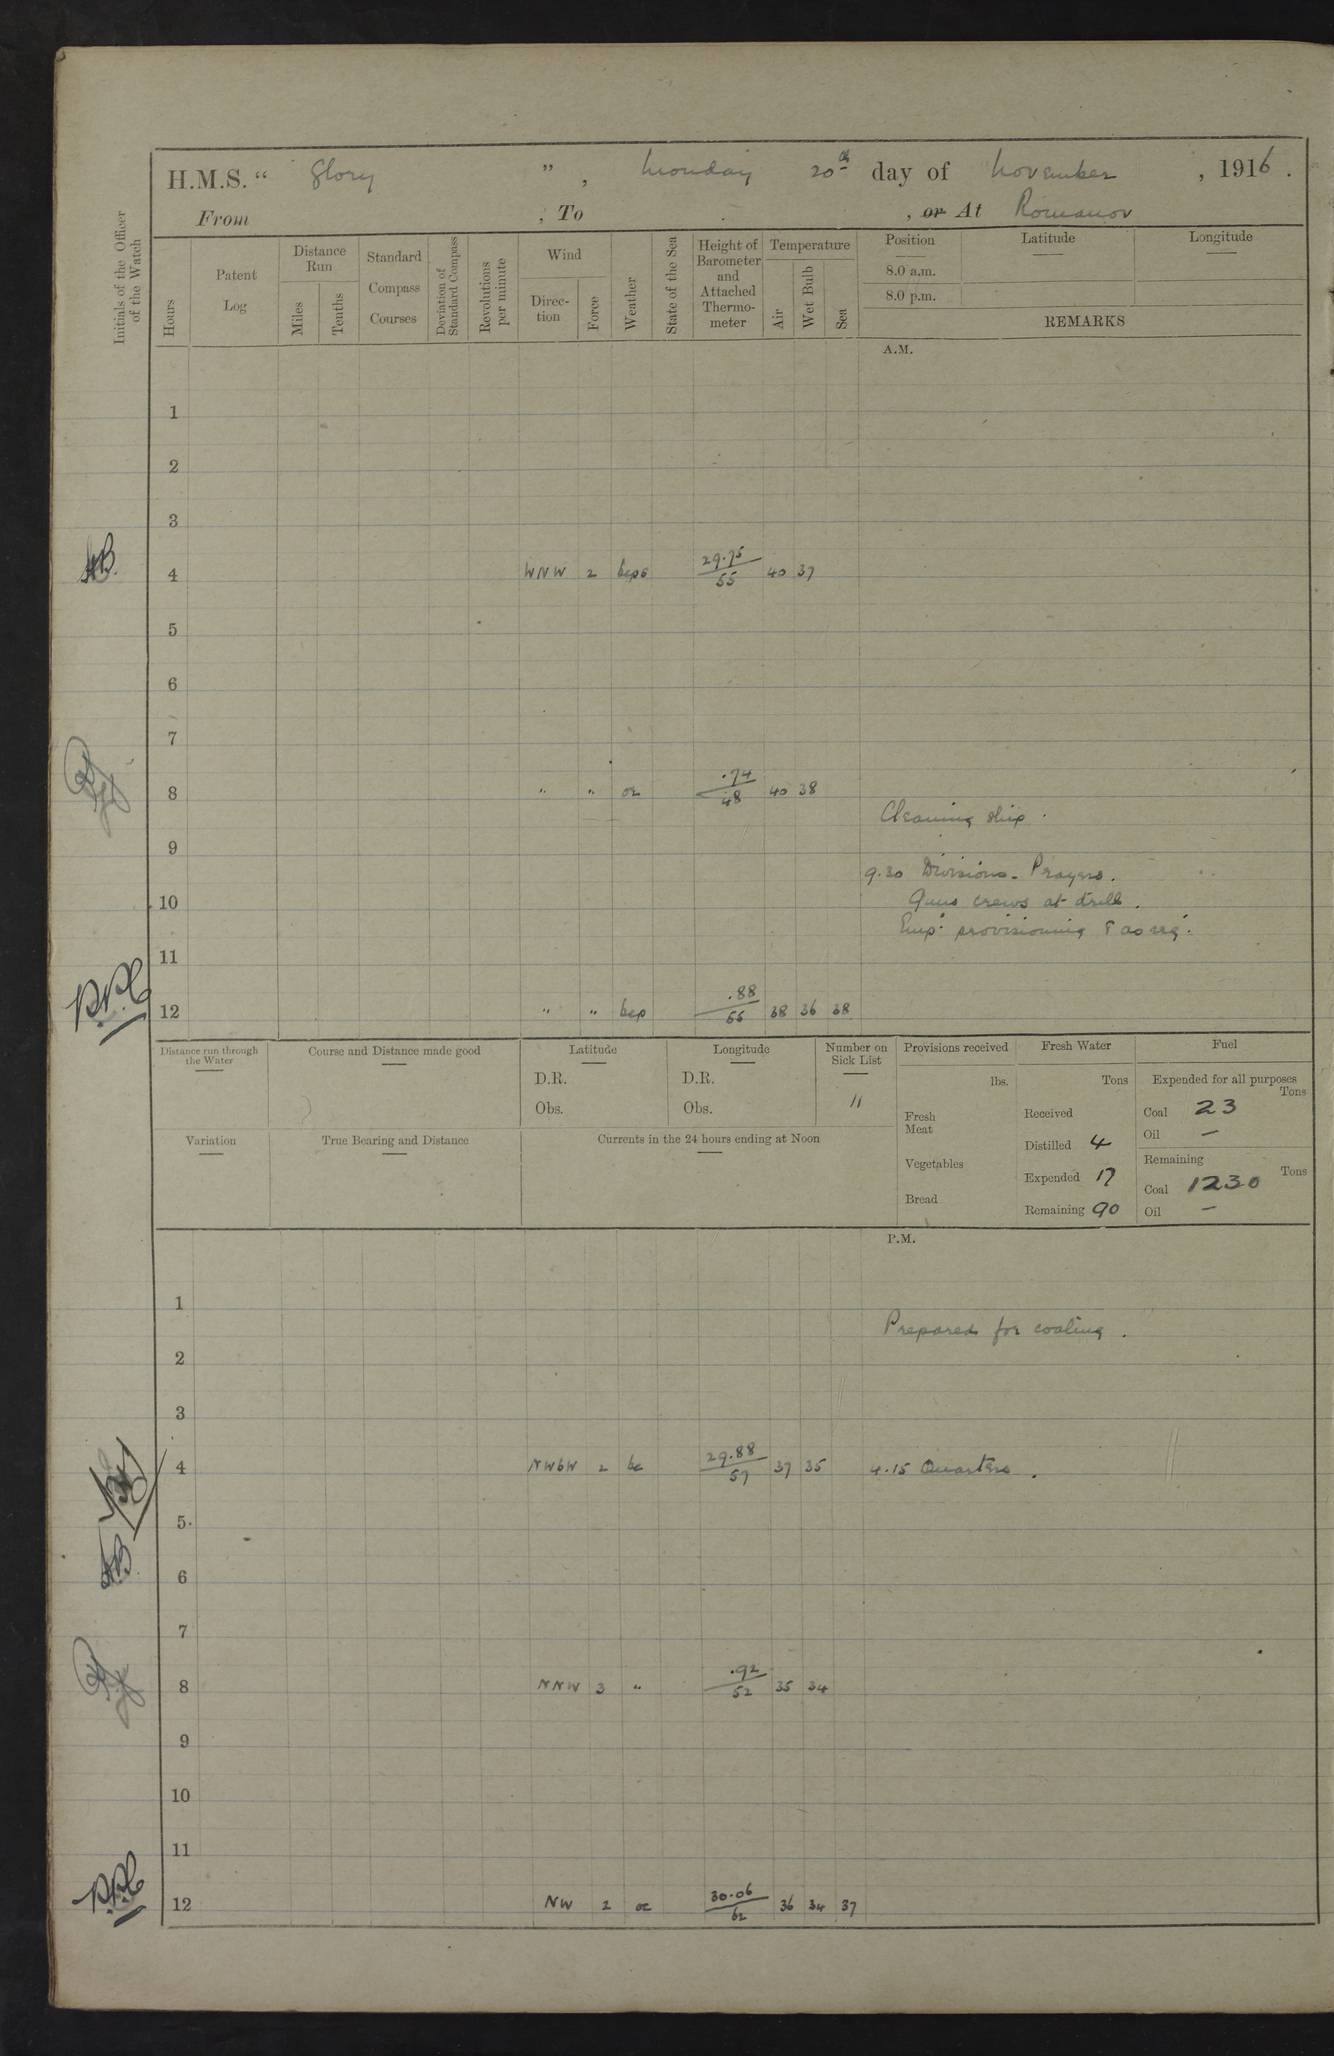 H.M.S. “ Glory ” , Monday 20th day of November , 1916 .
From , To , or At Romanov
Initials of the Officer of the Watch
Hours
Patent Log
Distance Run
Miles
Tenths
Standard Compass Courses
Deviation of Standard Compass
Revolutions per minute
Wind
Direc-tion
Force
Weather
State of the Sea
Height of Barometer and Attached Thermo-meter
Temperature
Air
Wet Bulb
Sea
Position Latitude Longitude
8.0 a.m.
8.0 p.m.
REMARKS
A.M.
1
2
3
4 WNW 2 29.75/55 40 37
5
6
7
8 " " .74/48 40 38
Cleaning ship .
9
9.30 Divisions - Prayers .
10 Guns crews at drill .
Empd provisioning & as reqd .
11
12 " " bcp .88/55 38 36 38
Distance run through the Water
Course and Distance made good
Latitude
D.R.
Obs.
Longitude
D.R.
Obs.
Number on Sick List
11
Provisions received
lbs.
Fresh Meat
Vegetables
Bread
Fresh Water
Tons
Received
Distilled 4
Expended 17
Remaining 90
Fuel
Expended for all purposes
Tons
Coal 23
Oil —
Remaining
Tons
Coal 1230
Oil —
Variation
True Bearing and Distance
Currents in the 24 hours ending at Noon
P.M.
1
Prepared for coaling .
2
3
4 NWbW 2 bc 29.88/57 37 35 4.15 Quarters .
5
6
7
8 NNW 3 " .92/52 35 34
9
10
11
12 NW 2 oc 30.06/62 36 34 37